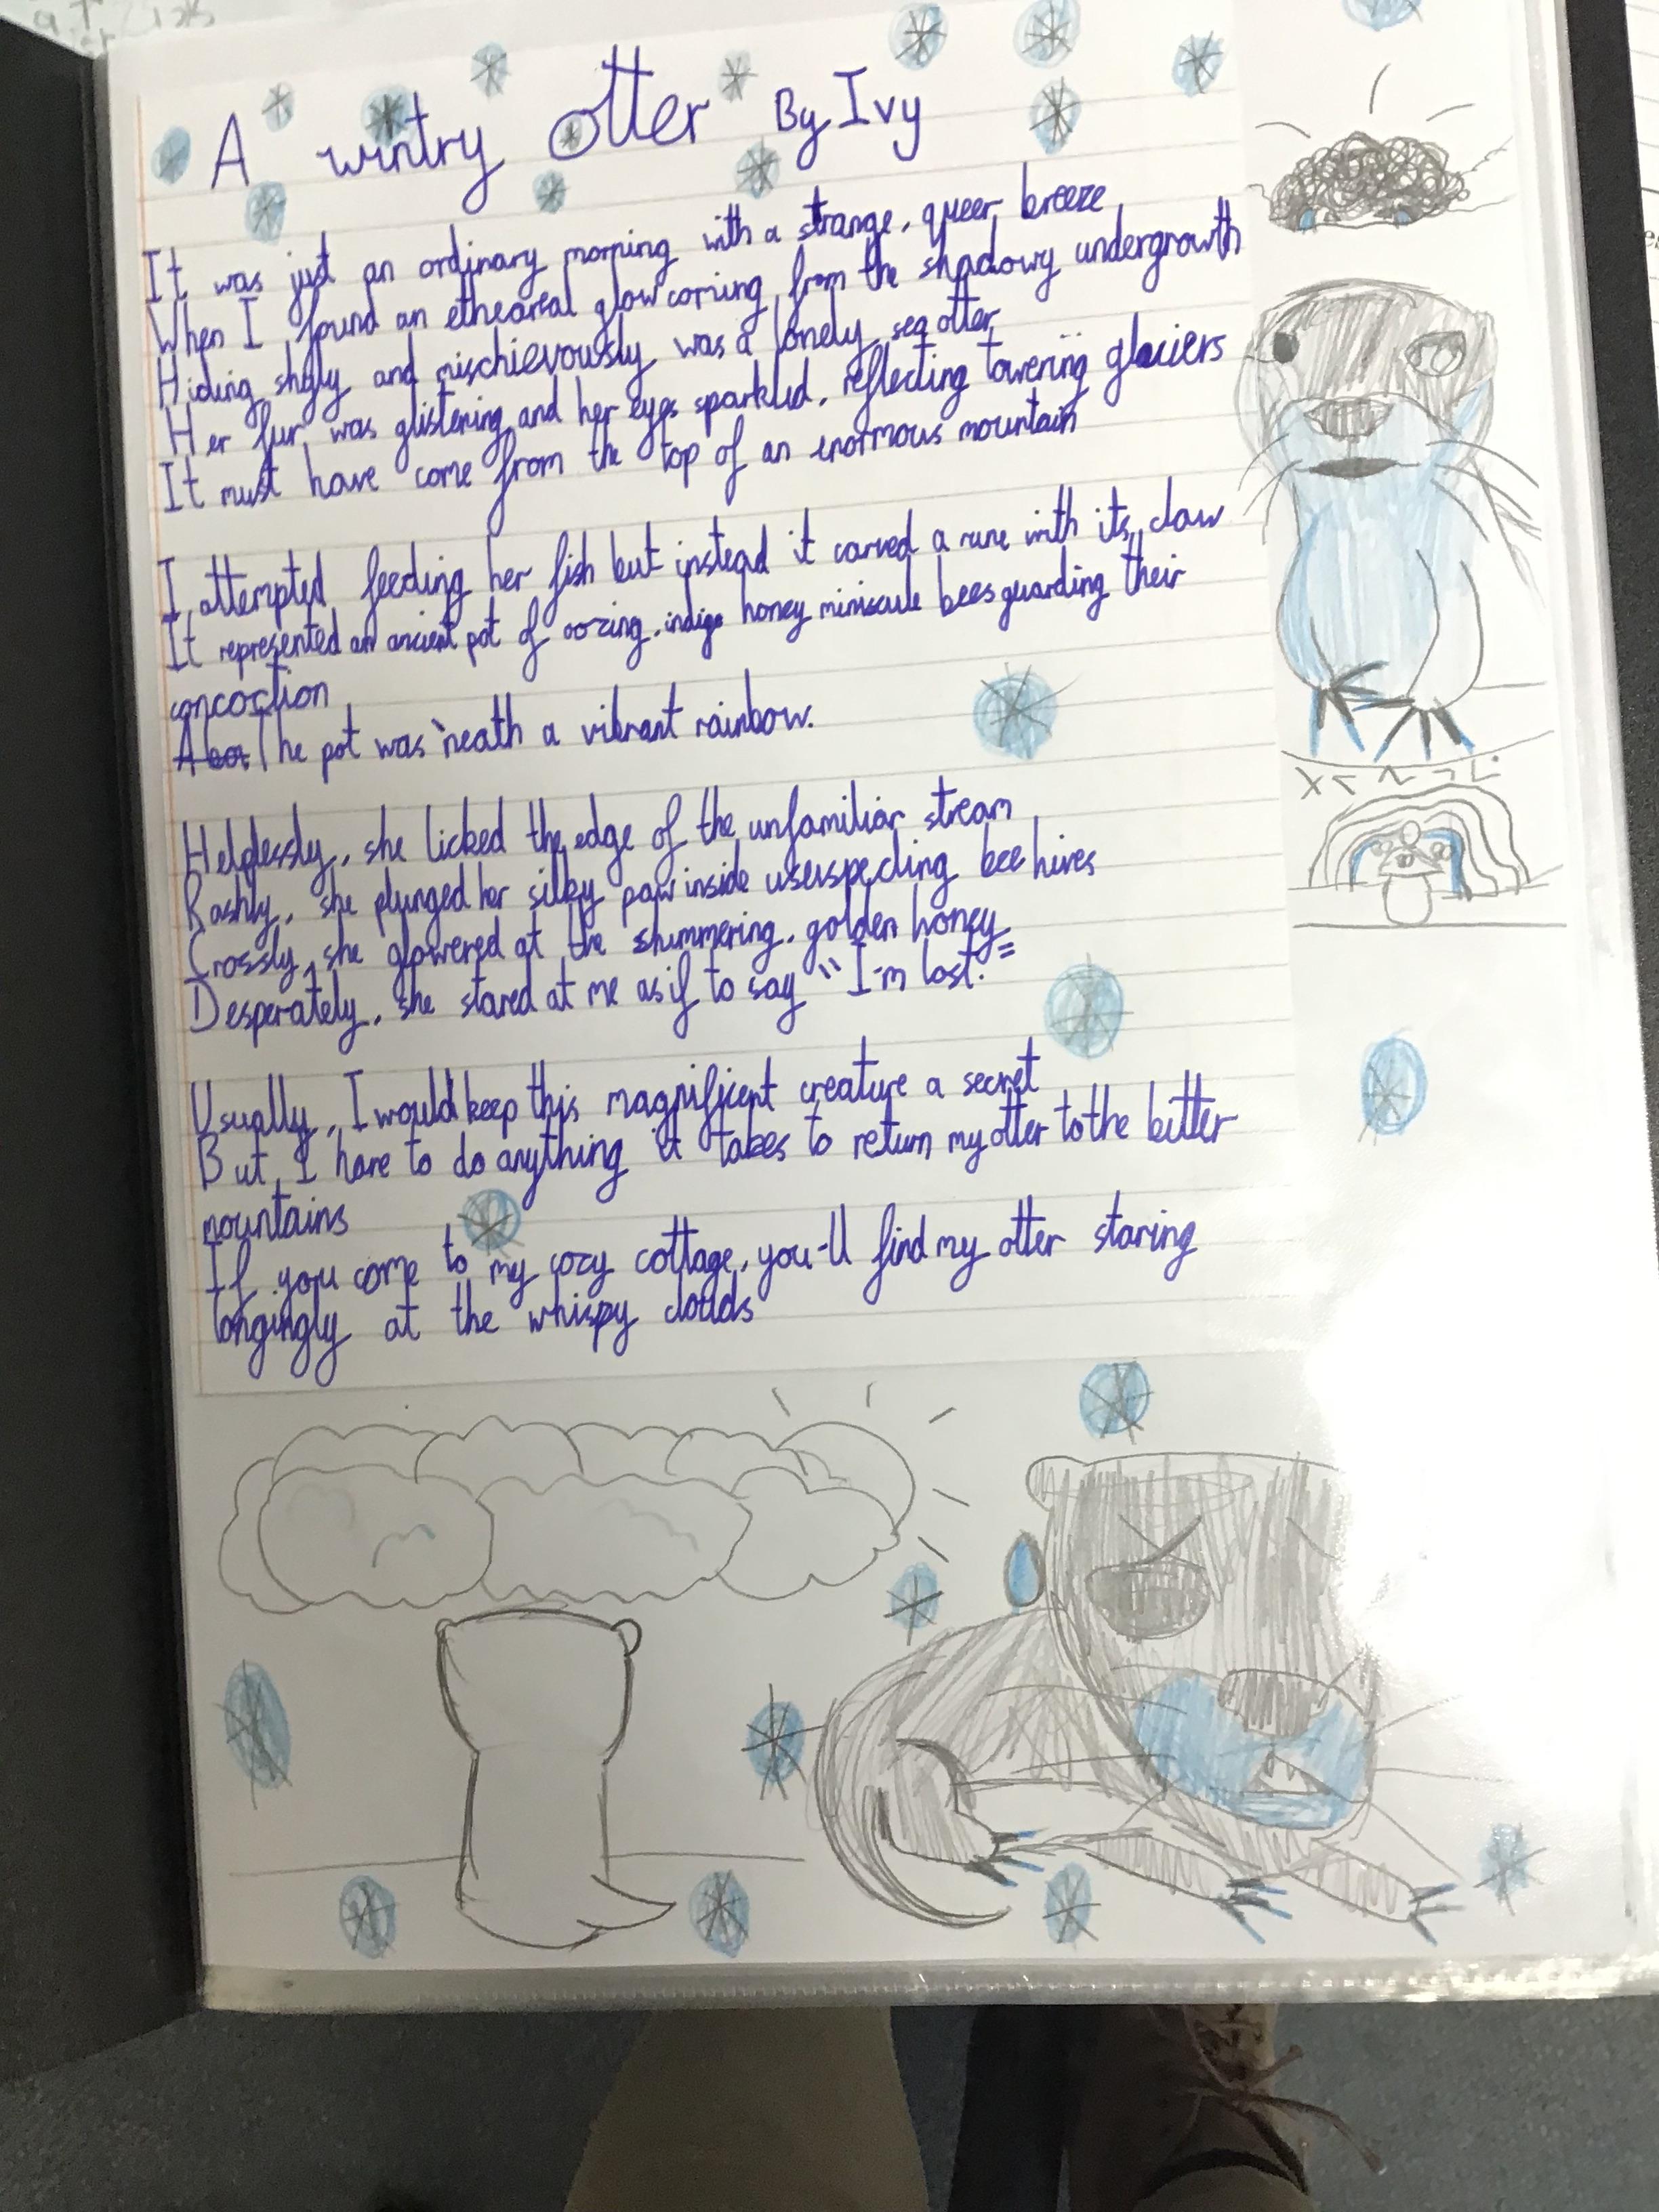 A wintry otter By Ivy
It was just an ordinary morning with a strange, queer breeze
When I found an ethearal glow coming from the shadowy undergrowth
Hiding shyly and mischievously was a lonely sea otter
Her fur was glistening and her eyes sparkled, reflecting towering glaciers
It must have come from the top of an enormous mountain
I attempted feeding her fish but instead it carved a rune with its claw
It represented an ancient pot of oozing, indigo honey miniscule bees guarding their
concoction
The pot was 'neath a vibrant rainbow.
Helplessly, she licked the edge of the unfamiliar stream
Rashly, she plunged her silky paw inside ususpecting bee hives
Crossly, she glowered at the shimmering, golden honey
Desperately, she stared at me as if to say "I'm lost."
Usually, I would keep this magnificent creature a secret
But, I have to do anything it takes to return my otter to the bitter
mountains
If you come to my cozy cottage, you'll find my otter staring
longingly at the whispy clouds